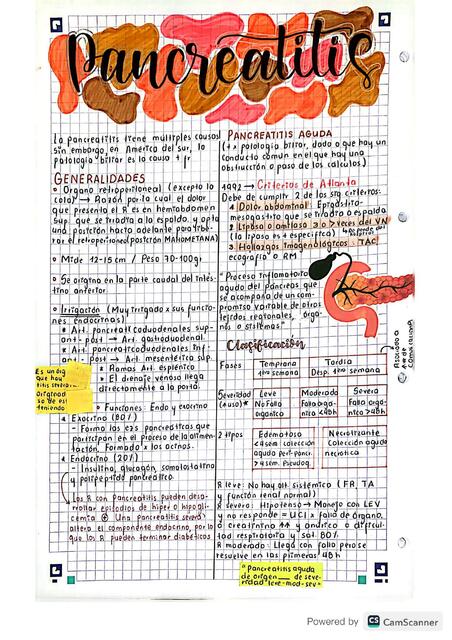 Pancreatitis
La pancreatitis tiene múltiples causas
Sin embargo, en América del sur, la
patología biliar es la causa + fr
GENERALIDADES
Organo retroperitoneal (excepto la
cola) → Razón por la cual el dolor
que presenta el R es en hemiabdomen
Sup. que se irradia a la espalda, y opta
una posición hacia adelante para libe-
rar el retroperitoneo (posición MAHOMETANA)
Mide 12-15 cm / Peso 70-100gr
Se origina en la parte caudal del intes-
tino anterior.
Irrigación (Muy irrigado x sus funcio-
nes endocrinas)
* Art. pancreaticoduodenales sup-
ant-post → Art. gastroduodenal.
* Art. pancreaticoduodenales inf-
ant-post → Art. mesentérica sup.
* Ramas Art esplénica
* El drenaje venoso llega
directamente a la porta.
Es un dig
que hay
Funciones: Endo y exocrino
Exocrino (80%)
- Forma las ezs pancreáticas que
participan en el proceso de la alimen-
tación. Formado x los acinos.
Endocrino (20%)
- Insulina, glucagón, somatostatina
y polipéptido pancreático.
Los R con pancreatitis pueden desa-
rrollar episodios de hiper o hipogli-
cemia Una pancreatitis severa
altera el componente endocrino, por lo
que los R pueden terminar diabéticos.
PANCREATITIS AGUDA
(+ x patología biliar, dado a que hay un
conducto común en el que hay una
obstrucción o paso de los cálculos)
1992 → Criterios de Atlanta
Debe de cumplir 2 de los sig criterios:
1 Dolor abdominal: Epigástrico-
mesogastrio que se irradia a espalda
2 Lipasa o amilasa 3 o > veces del VN
(la lipasa es + específica)
3 Hallazgos imagenológicos: TAC,
ecografía o RM
"Proceso inflamatorio
agudo del páncreas que
se acompaña de un com-
promiso variable de otros
tejidos regionales, órga-
nos o sistemas"
Clasificación
Fases Temprana Tardía
1ra semana Desp. 1ra semana
Severidad Leve Moderada Severa
(+ uso)* No Fallo Falla orgá- Falla orgá-
orgánico nica <48h nica >48h
2 tipos Edematosa Necrotizante
<4sem colección Colección aguda
aguda peri-pancr. necrótica
>4sem. Pseudoq.
R leve: No hay alt sistémica (FR, TA
y función renal normal)
R severo: Hipotenso → Manejo con LEV
y no responde = UCI x falla de órgano.
o creatinina ↑↑ y anúrico o dificul-
tad respiratoria y sat 80%
R moderado: Llega con falla pero se
resuelve en las primeras 48h
"Pancreatitis aguda
de origen ___ de seve-
ridad leve-mod-sev"
Powered by CS CamScanner